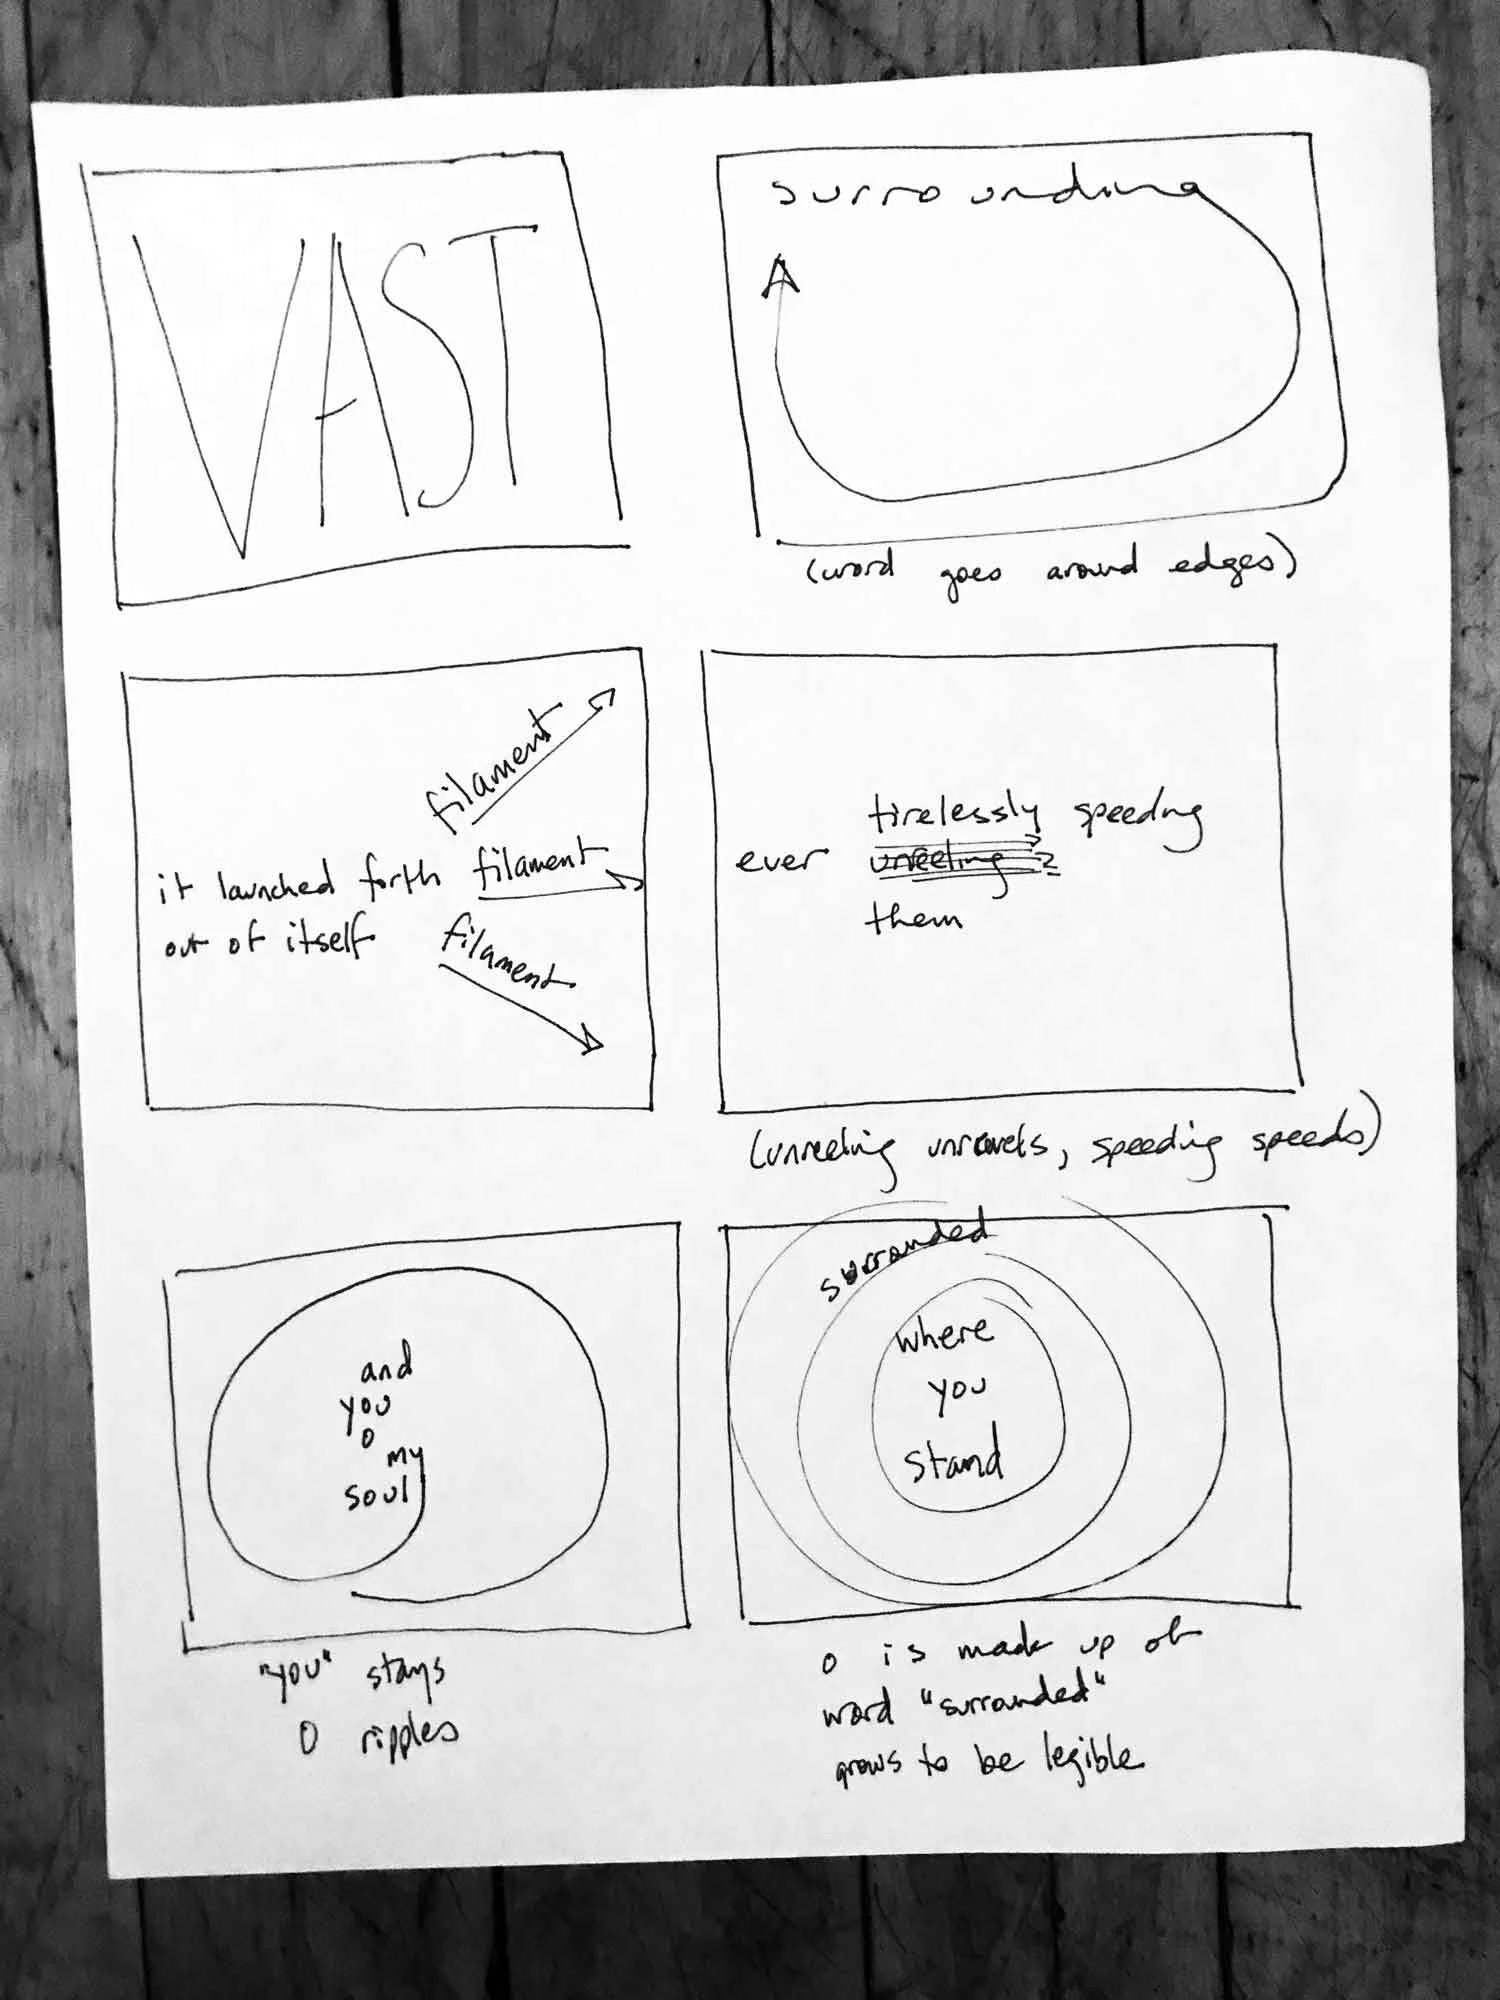 VAST
surrounding
(word goes around edges)
filament
it launched forth filament
out of itself filament
tirelessly speeding
ever unreeling
them
(unreeling unravels, speeding speeds)
and
you
o
my
soul
"you" stays
O ripples
surrounded
where
you
stand
o is made up of
word "surrounded"
grows to be legible